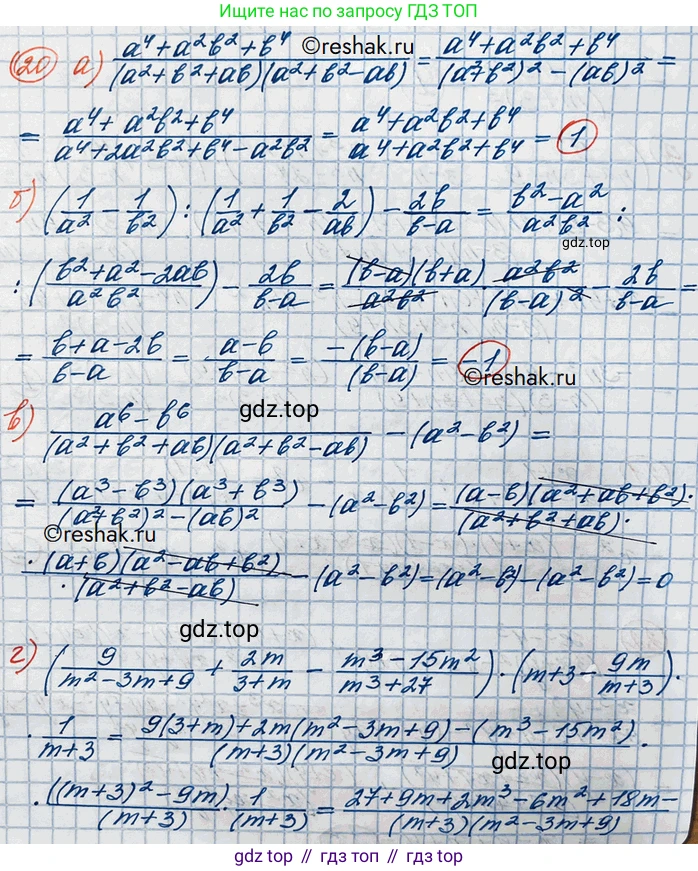 Найдено по запросу ГДЗ ТОП
20 а) (a⁴+a²b²+b⁴)/((a²+b²+ab)(a²+b²-ab)) = (a⁴+a²b²+b⁴)/((a²+b²)²-(ab)²) =
©reshak.ru
= (a⁴+a²b²+b⁴)/(a⁴+2a²b²+b⁴-a²b²) = (a⁴+a²b²+b⁴)/(a⁴+a²b²+b⁴) = 1
б) (1/a² - 1/b²) : (1/a² + 1/b² - 2/ab) - 2b/(b-a) = (b²-a²)/(a²b²) :
gdz.top
: ((b²+a²-2ab)/(a²b²)) - 2b/(b-a) = ((b-a)(b+a))/(a²b²) · (a²b²)/((b-a)²) - 2b/(b-a) =
= (b+a-2b)/(b-a) = (a-b)/(b-a) = (-(b-a))/((b-a)) = -1
©reshak.ru
gdz.top
в) (a⁶-b⁶)/((a²+b²+ab)(a²+b²-ab)) - (a²-b²) =
= ((a³-b³)(a³+b³))/((a²+b²)²-(ab)²) - (a²-b²) = ((a-b)(a²+ab+b²)·)/((a²+b²+ab)·
©reshak.ru
·(a+b)(a²-ab+b²))/(·(a²+b²-ab)) - (a²-b²) = (a²-b²)-(a²-b²) = 0
gdz.top
г) (9/(m²-3m+9) + 2m/(3+m) - (m³-15m²)/(m³+27)) · (m+3 - 9m/(m+3)) ·
· 1/(m+3) = (9(3+m)+2m(m²-3m+9)-(m³-15m²))/((m+3)(m²-3m+9)) ·
gdz.top
· ((m+3)²-9m)/(m+3) · 1/(m+3) = (27+9m+2m³-6m²+18m-)/((m+3)(m²-3m+9))
gdz.top // гдз топ // gdz.top // гдз топ // gdz.top